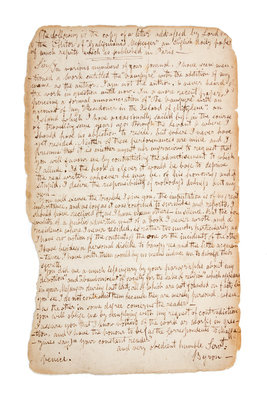 The following is the copy of a letter addressed by Lord
the Editor of "Galignani's Messenger" an English Daily paper
of much repute which is published in Paris —
Sir,
In various numbers of your Journal, I have seen men-
tioned a work entitled the "Vampyre" with the addition of my
name as the author. I am not the author, & never heard of
the work in question until now. In a more recent paper I
perceive a formal annunciation of "the Vampyre" with an
account of my "Residence in the Island of Mitylene" an
Island which I have occasionally sailed by in the course
of travelling some years ago through the Levant — &
should have no objection to reside, but where I have never
yet resided. Neither of these performances are mine, and I
presume that it is neither unjust nor ungracious to request that
you will favour me by contradicting the advertisement to which
I allude. If the book is clever it would be base to deprive
the real writer, whoever he may be, of his honours; and
if stupid, I desire the responsibility of nobody's dulness but my
own.
You will excuse the trouble I give you, the imputation is of no great
importance, and as long as it was confined to surmises and reports, I
should have received it as I have many others, in silence. But the
formality of a public advertisement of a book I never wrote, and a
residence where I never resided, is rather too much; particularly as
I have no notion of the contents of the one or the incidents of the other.
I have besides a personal dislike to Vampires, and the little acquain-
tance I have with them would by no means induce me to divulge their
secrets.
You did me a much less injury by your paragraphs about my
devotion, and "abandonment of society for the sake of religion", which appeared
in your Messenger during last Lent, all of which are not founded on fact, but
you see I do not contradict them because they are merely personal, whereas
the other in some degree concerns the reader —
You will oblige me by complying with my request of contradiction
I assure you that I know nothing of the work or works in ques-
tion, and have the honour to be (as the correspondents to Magaz-
ines say) "your constant reader"
and very obedient humble Servt.
Byron —
Venice.